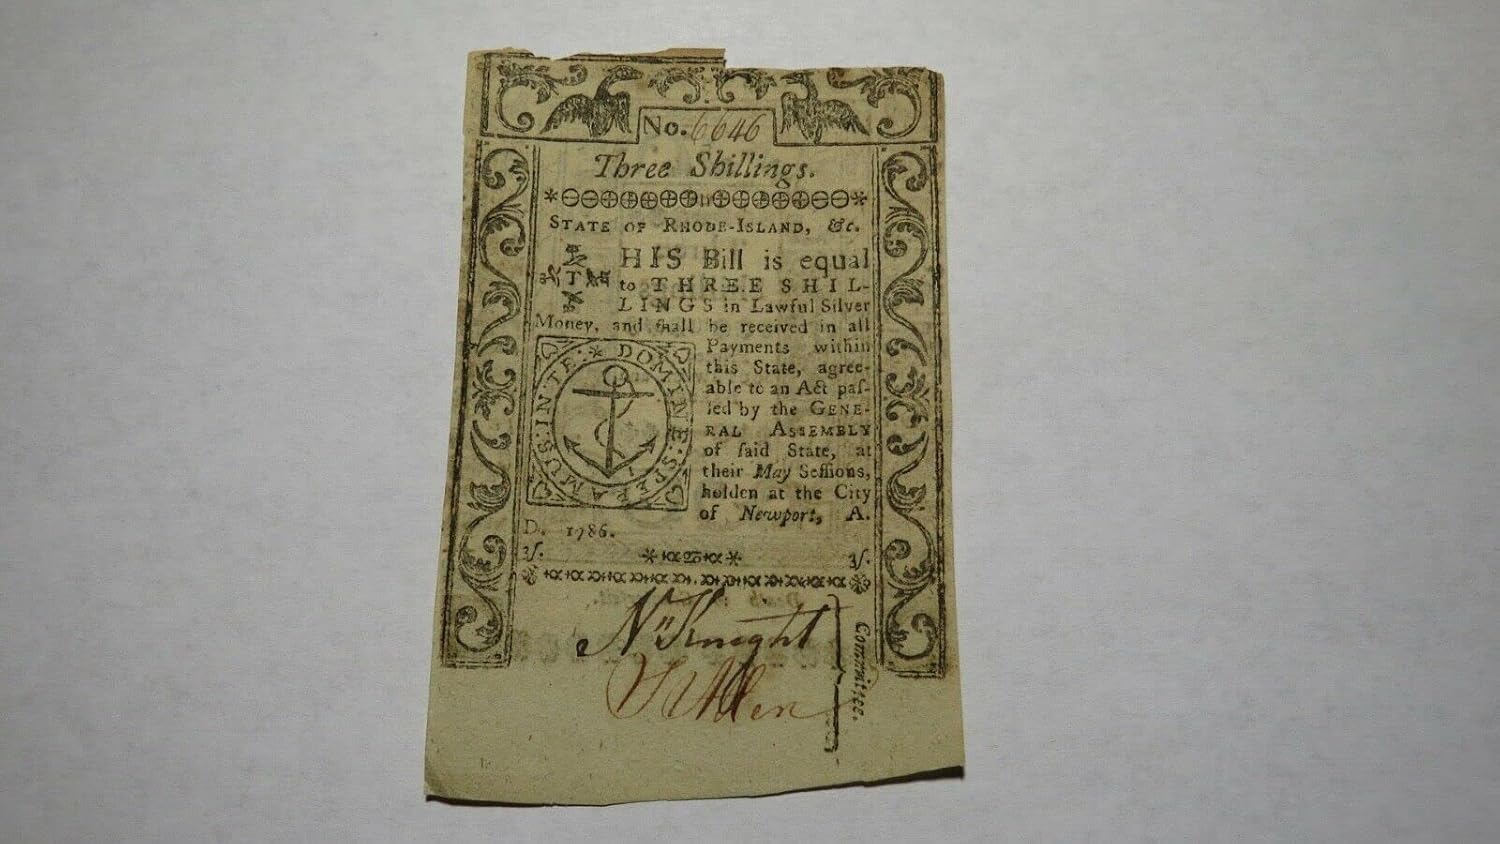 No. 6646
Three Shillings.
STATE OF RHODE-ISLAND, &c.
THIS Bill is equal
to THREE SHIL-
LINGS in Lawful Silver
Money, and ſhall be received in all
Payments within
this State, agree-
able to an Act paſ-
ſed by the GENE-
RAL ASSEMBLY
of ſaid State, at
their May Seſſions,
holden at the City
of Newport, A.
D. 1786.
IN TE : * DOMINE : SPERAMUS :
3ſ. 3ſ.
N Knight
Allen
Committee.